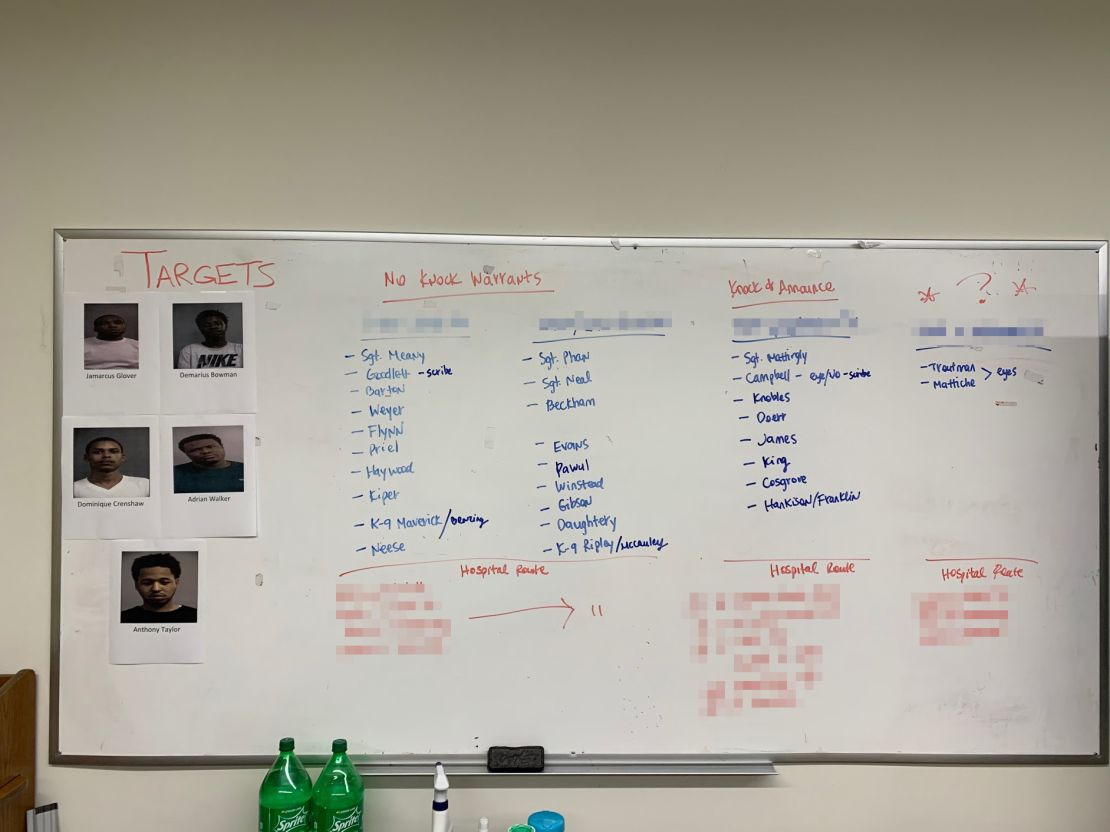 TARGETS
Jamarcus Glover
NIKE
Demarius Bowman
Dominique Crenshaw
Adrian Walker
Anthony Taylor
No Knock Warrants
- Sgt. Meany
- Goodlett - scribe
- Barton
- Weyer
- Flynn
- Priel
- Haywood
- Kiper
- K-9 Maverick/
- Neese
- Sgt. Phan
- Sgt. Neal
- Beckham
- Evans
- Pawul
- Winstead
- Gibson
- Daughtery
- K-9 Ripley/McCauley
Hospital Route
"
Knock & Announce
- Sgt. Mattingly
- Campbell - eye/No - scribe
- Knobles
- Doerr
- James
- King
- Cosgrove
- Hankison/Franklin
Hospital Route
* ? *
- Troutman > eyes
- Mattiche
Hospital Route
Sprite
Sprite